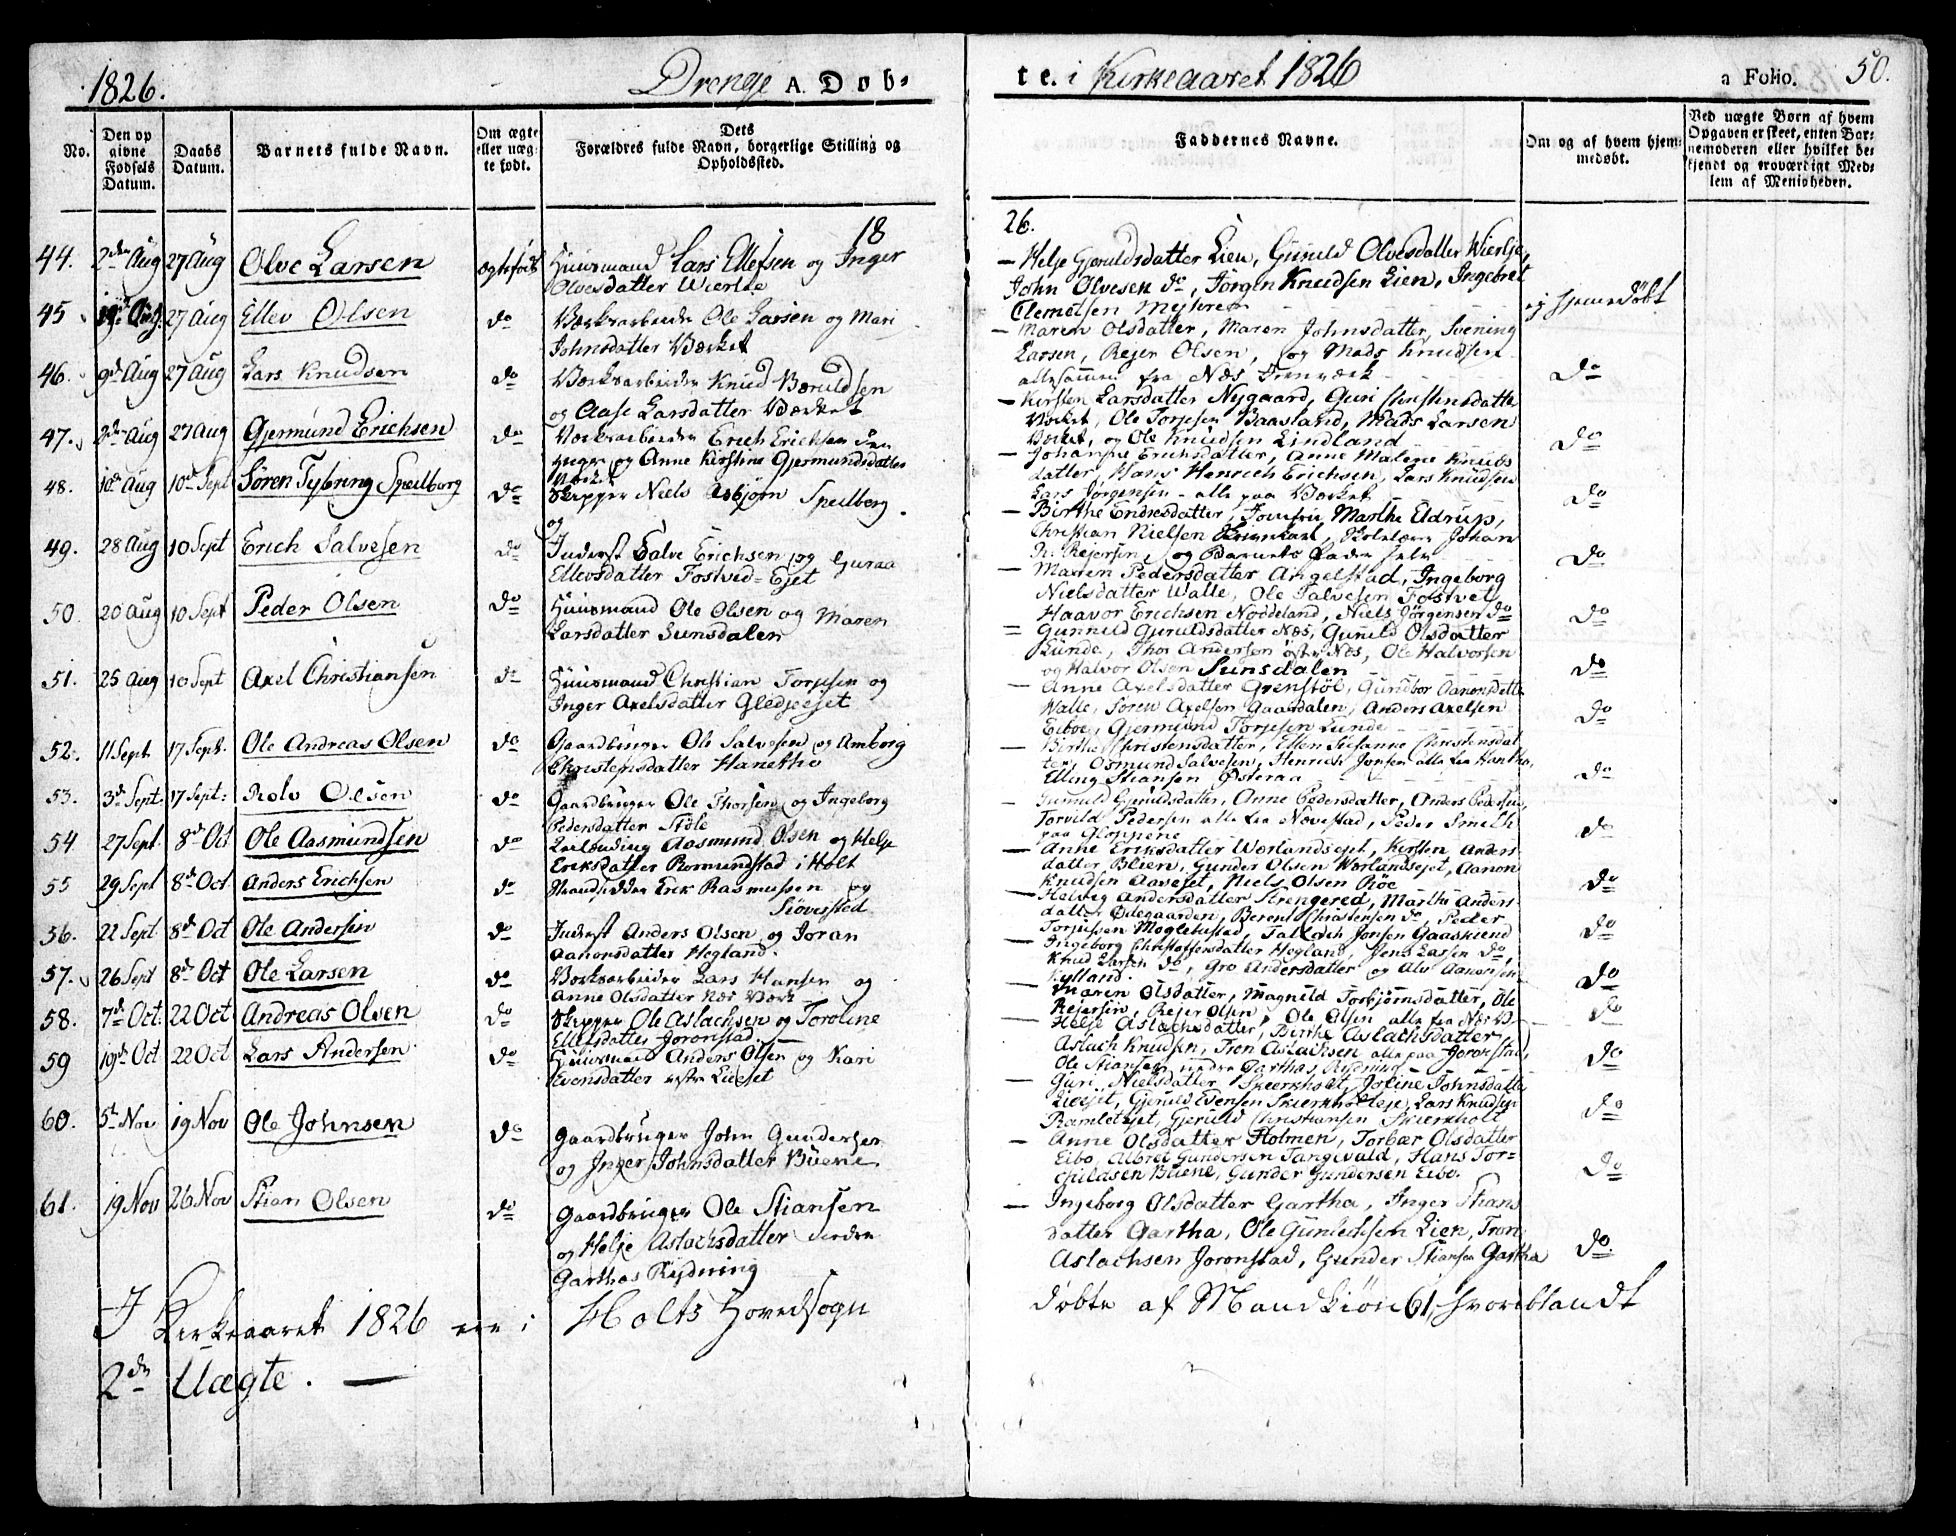 1826.
Drenge A. Døb-
No.
Den op
givne
Fødsels
Datum.
Daabs
Datum.
Barnets fulde Navn.
Om ægte
eller uæg-
te født.
Dets
Forældres fulde Navn, borgerlige Stilling og
Opholdssted.
18
44. 2den Aug 27 Aug Olve Larsen ægtefødt Huusmand Lars Ellefsen og Inger
Olvesdatter Wierlie
45 Aug 27 Aug Ellev Olsen do Værksarbeider Ole Larsen og Mari
Johnsdatter Værket
46. 9de Aug 27 Aug Lars Knudsen do Værksarbeider Knud Bæruldsen
og Aase Larsdatter Værket
47. 2den Aug 27 Aug Gjermund Erichsen do Værksarbeider Erich Erichsen
og Anne Kirstine Gjermundsdatter
48. 10de Aug 10de Sept Søren Tybring Speilborg do Skipper Niels Asbjørn Speilberg.
og
49. 28 Aug 10 Sept Erich Salvesen do Inderst Salve Erichsen og Guraa
Ellevsdatter Fostved-Ejet
50. 20 Aug 10 Sept Peder Olsen do Huusmand Ole Olsen og Maren
Larsdatter Sunsdalen
51. 25 Aug 10 Sept Axel Christiansen do Huusmand Christian Torjesen og
Inger Axelsdatter Gledjeeiet
52. 11 Sept 17 Sept. Ole Andreas Olsen do Gaardbruger Ole Salvesen og Amborg
Christensdatter Hanetho
53. 3de Sept: 17 Sept: Rolv Olsen do Gaardbruger Ole Thorsen og Ingeborg
Pedersdatter Støle
54 27 Sept. 8de Oct Ole Aasmundsen do Aasmund Olsen og Helje
Eriksdatter Rormundstad i Holt
55 29 Sept 8de Oct. Anders Erichsen do Erik Rasmussen og
Siøversted
56. 22 Sept. 8de Oct Ole Andersen do Inderst Anders Olsen og Joran
Aanonsdatter Hegland.
57. 26 Sept 8de Oct Ole Larsen do Værksarbeider Lars Hansen og
Anne Olsdatter Næs Værk
58. 7de Oct. 22 Oct Andreas Olsen do Skipper Ole Aslachsen og Toroline
Ellefsdatter Joronstad.
59 19de Oct 22 Oct Lars Andersen do Huusmand Anders Olsen og Kari
Evensdatter Lieeiet
60. 5te Nov 19 Nov Ole Johnsen do Gaardbruger John Gundersen
og Inger Johnsdatter Buene
61. 19 Nov 26 Nov Stian Olsen do Gaardbruger Ole Stiansen
og Helje Aslachsdatter nedre
Garthas Rydning
I Kirkeaaret 1826 ere i Holts Hovedsogn
2de Uægte. —
te. i Kirkeaaret 1826
a Folio. 50.
Faddernes Navne.
Om og af hvem hjem-
medøbt.
Ved uægte Børn af hvem
Opgaven er skeet, enten Bar-
nemoderen eller hvilket be-
kjendt og troværdigt Med-
lem af Menigheden.
26.
— Helje Gjeruldsdatter Lien, Gunild Olvesdatter Wierlie,
John Olvesen do, Jørgen Knudsen Lien, Ingebret
Clemetsen
ej hjemmedøbt
— Maren Olsdatter, Maren Johnsdatter, Svening
Larsen, Rejer Olsen, og Mads Knudsen
allesammen fra Næs Jernværk do
— Kirsten Larsdatter Nygaard, Guri Christensdatter
Værket, Ole Torjesen Baasland, Mads Larsen
Værket, og Ole Knudsen Lindland do
— Johanne Erichsdatter, Anne Malene Knuds
datter, Hans Henrich Erichsen, Lars Knudsen
Lars Jørgensen - alle paa Værket do
— Birthe Endresdatter, Jomfru Marthe Eldrup,
Christian Nielsen, Johan
N. Rejersen, og Barnets Fader selv do
— Maren Pedersdatter Angelstad, Ingeborg
Nielsdatter Walle, Ole Salvesen Fostvet
Haavor Erichsen Noddeland, Niels Jørgensen do do
— Gunnild Gjeruldsdatter Næs, Gunild Olsdatter
Lunde, Thor Andersen Næs, Ole Halvorsen
og Halvor Olsen Sunsdalen do
— Anne Axelsdatter Grenstøl, Gundbor Aanonsdatter
Walle, Søren Axelsen Gaardalen, Anders Axelsen
Eiboe, Gjermund Torjesen Lunde do
— Birthe Christensdatter, Ellen Susanne Christensdat
ter, Osmund Salvesen, Henrich Jonsen alle fra Hantho,
Elling Stiansen Østeraa do
— Gunnild Gjeruldsdatter, Anne Pedersdatter, Anders Pedersen,
Torvild Pedersen alle fra Nævestad, Peder Smith
paa Gloppene do
— Anne Eriksdatter Worlandsejet, Kirsten Anders-
datter Blien, Gunder Olsen Worlandsejet, Aanon
Knudsen Aaveset, Niels Olsen Røe do
— Helvig Andersdatter Strengered, Marthe Anders-
datter Ødegaarden, Berent Christensen do, Peder
Torjussen Moglehustad, Tallach Jonsen Gaaslund do
— Ingeborg Christophersdatter Hegland, Jens Larsen do,
Knud Larsen do, Gro Andersdatter og Alv Aanonsen
Kylland. do
— Maren Olsdatter, Magnild Torbjørnsdatter, Ole
Rejersen, Rejer Olsen, Ole Olsen alle fra Næs V. do
— Helje Aslachsdatter, Birthe Aslachsdatter
Aslach Knudsen, Tron Aslachsen alle paa Joronstad,
Ole Stiansen nedre Garthas Rydning do
— Guri Nielsdatter Skierkholt, Joline Johnsdatter
Lieejet, Gjeruld Evensen Skierkholteje, Lars Knudsen
Ramletejet, Gjeruld Christiansen Skierkholt do
— Anne Olsdatter Holmen, Torbær Olsdatter
Eibo, Albret Gundersen Tangevald, Hans Tor-
childsen Buene, Gunder Gundersen Eibo. do
— Ingeborg Olsdatter Gartha, Inger Stians
datter Gartha, Ole Gunleichsen Lien, Tron
Aslachsen Joronstad, Gunder Stiansen Gartha do
døbte af Mandkiøn 61, hvoriblandt